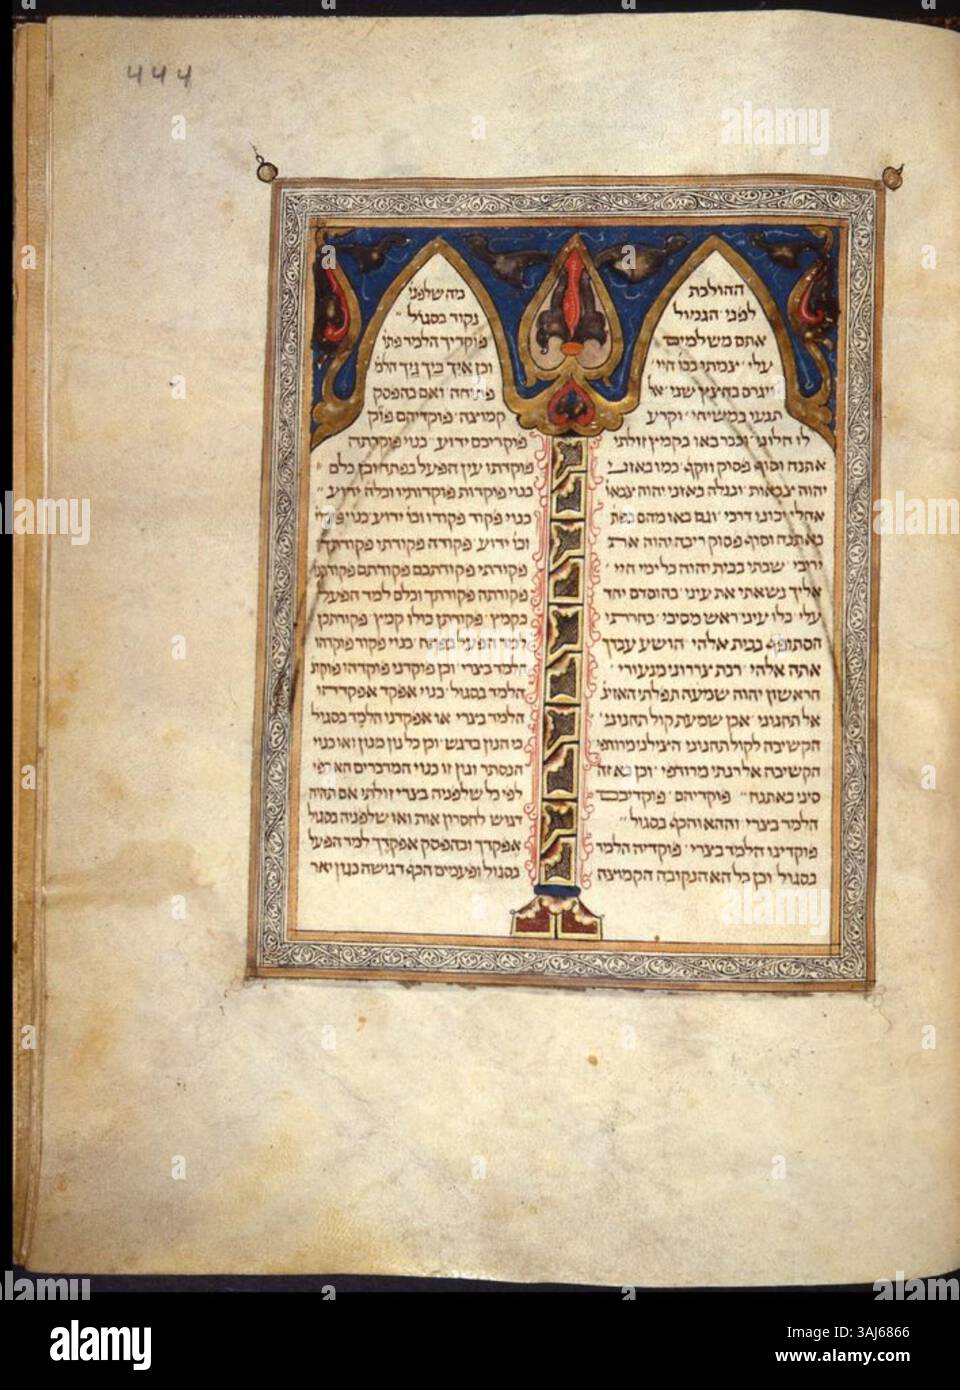 444
ההולכת
לפני הגמול
אתם משלמים
עלי
תגעו במשיחי וקרע
לו חלוני וכבר באו בקמץ זולתי
אתנח וסוף פסוק וזקף כמו באזני
יהוה צבאות ונגלה באזני יהוה צבאו
אחלי יכונו דרכי וגם באו מהם בפת
באתנח וסוף פסוק ריבה יהוה את
יריבי שבתי בבית יהוה כל ימי חיי
אליך נשאתי את עיני בהוסדם יחד
עלי כלו עיני ראש מסיבי בחררתי
הסתופף בבית אלהי הושע עבדך
אתה אלהי רבת צררוני מנעורי
הראשון יהוה שמעה תפלתי האזינ
אל תחנוני אכן שמעת קול תחנוני
הקשיבה לקול תחנוני הצילני
הקשיבה אל רנתי מרודפי וכן בא זה
סיני באתנח פוקדיהם פוקדיכם
הלמד בצרי וההא והכף בסגול
פוקדינו הלמד בצרי פוקדיה הלמד
בסגול וכן כל הא הנקובה הקמוצה
מה שלפני
נקוד בסגול
פוקדיך הלמד פתו
וכן איך ביך ניך הלמ
פתוחה ואם בהפסק
קמוצה פוקדיהם פוק
פוקדיכם ידוע כנוי פוקדתה
פוקדתו עין הפעל בפתח וכן כלם
כנוי פוקדות פוקדותיו וכלה ידוע
כנוי פקוד פקודו וכו ידוע כנוי
וכו ידוע פקודה פקודתי פקודתך
פקודתי פקודתכם פקודתם
פקודתה פקודתך וכלם למד הפעל
בקמץ פקודתן כולו קמץ פקודתכן
למד הפעל בפתח כנוי פקוד פוקדהו
הלמד בצרי וכן פוקדנו פוקדהו
הלמד בסגול כנוי אפקד אפקדהו
הלמד בצרי או אפקדנו הלמד בסגול
מהנון בדגש וכן כל נון מנון ואו כנוי
הנסתר ונון זו כנוי המדברים הא רפי
לפי כל שלפניה בצרי זולתי אם תהיה
דגוש לחסרון אות ואו שלפניה בסגול
אפקדך ובהפסק אפקדך למד הפעל
בסגול ופעמים הכף דגושה כנון יאר
alamy
Image ID: 3AJ6866
www.alamy.com